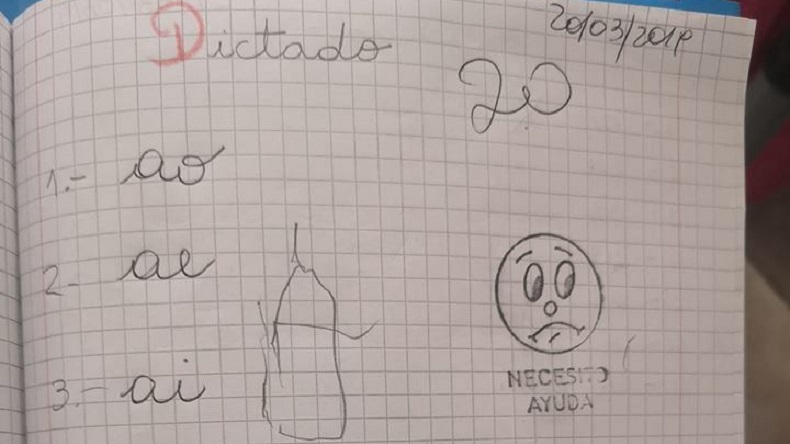 20/03/2019
Dictado
20
1.- ao
2- ae
3.- ai
NECESITO
AYUDA